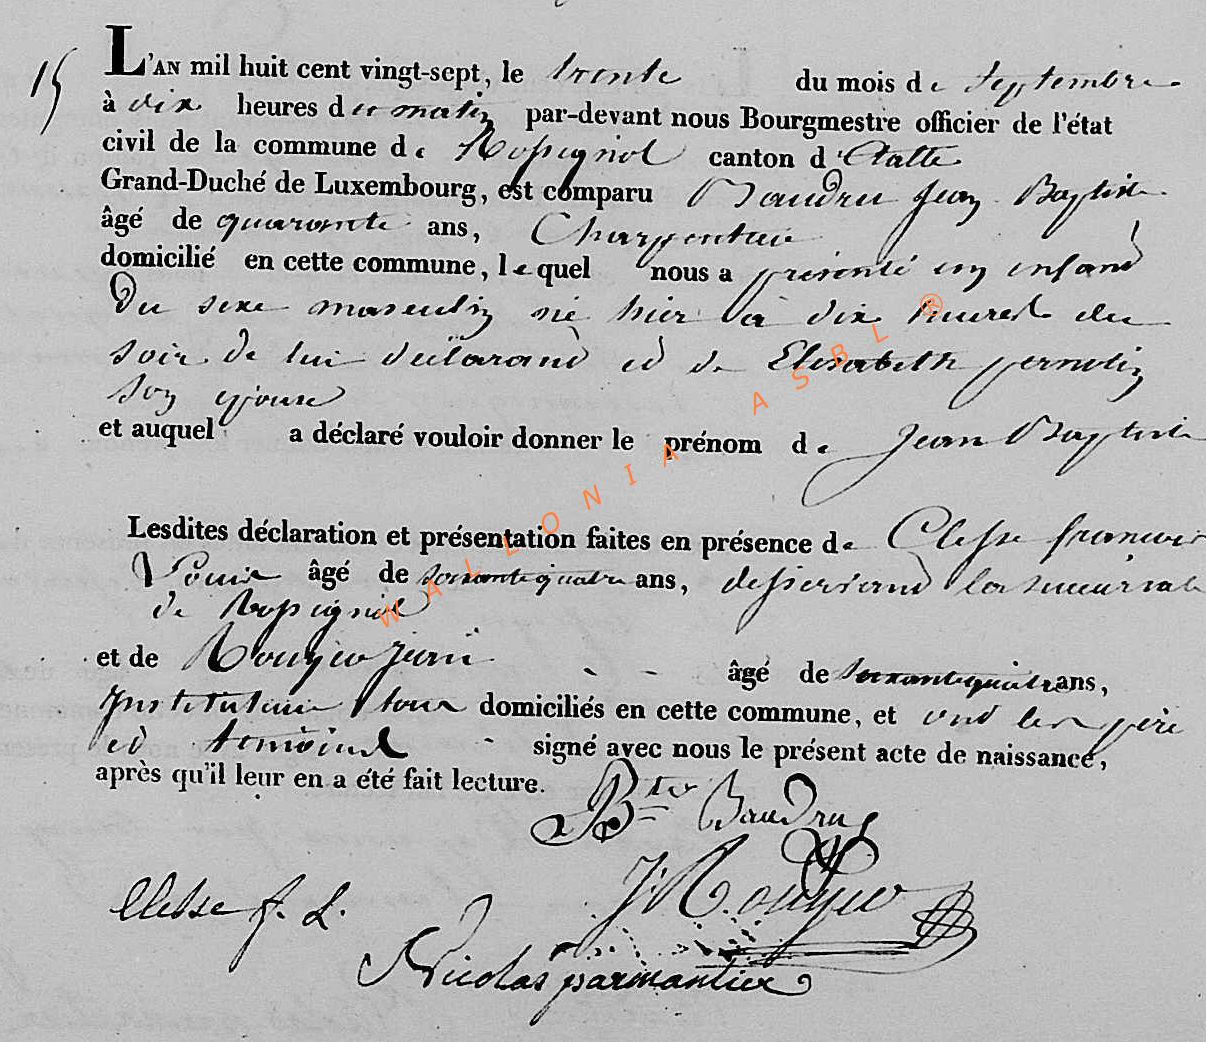 15
L'AN mil huit cent vingt-sept, le trente du mois de Septembre
à dix heures du matin par-devant nous Bourgmestre officier de l'état
civil de la commune de Rossignol canton d'Etalle
Grand-Duché de Luxembourg, est comparu Baudru Jean Baptiste
âgé de quarante ans, Charpentier
domicilié en cette commune, lequel nous a présenté un enfant
Du sexe masculin né hier à dix heures du
soir de lui déclarant et de Elisabeth pernotin
son épouse
et auquel a déclaré vouloir donner le prénom de Jean Baptiste
Lesdites déclaration et présentation faites en présence de Clesse françois
Louis âgé de soixante quatre ans, desservant la succursale
de Rossignol
et de âgé de ans,
Instituteur tous domiciliés en cette commune, et ont les père
et témoins signé avec nous le présent acte de naissance,
après qu'il leur en a été fait lecture.
Bte Baudru
Clesse f. L.
Nicolas parmentier
WALLONIA ASBL ®